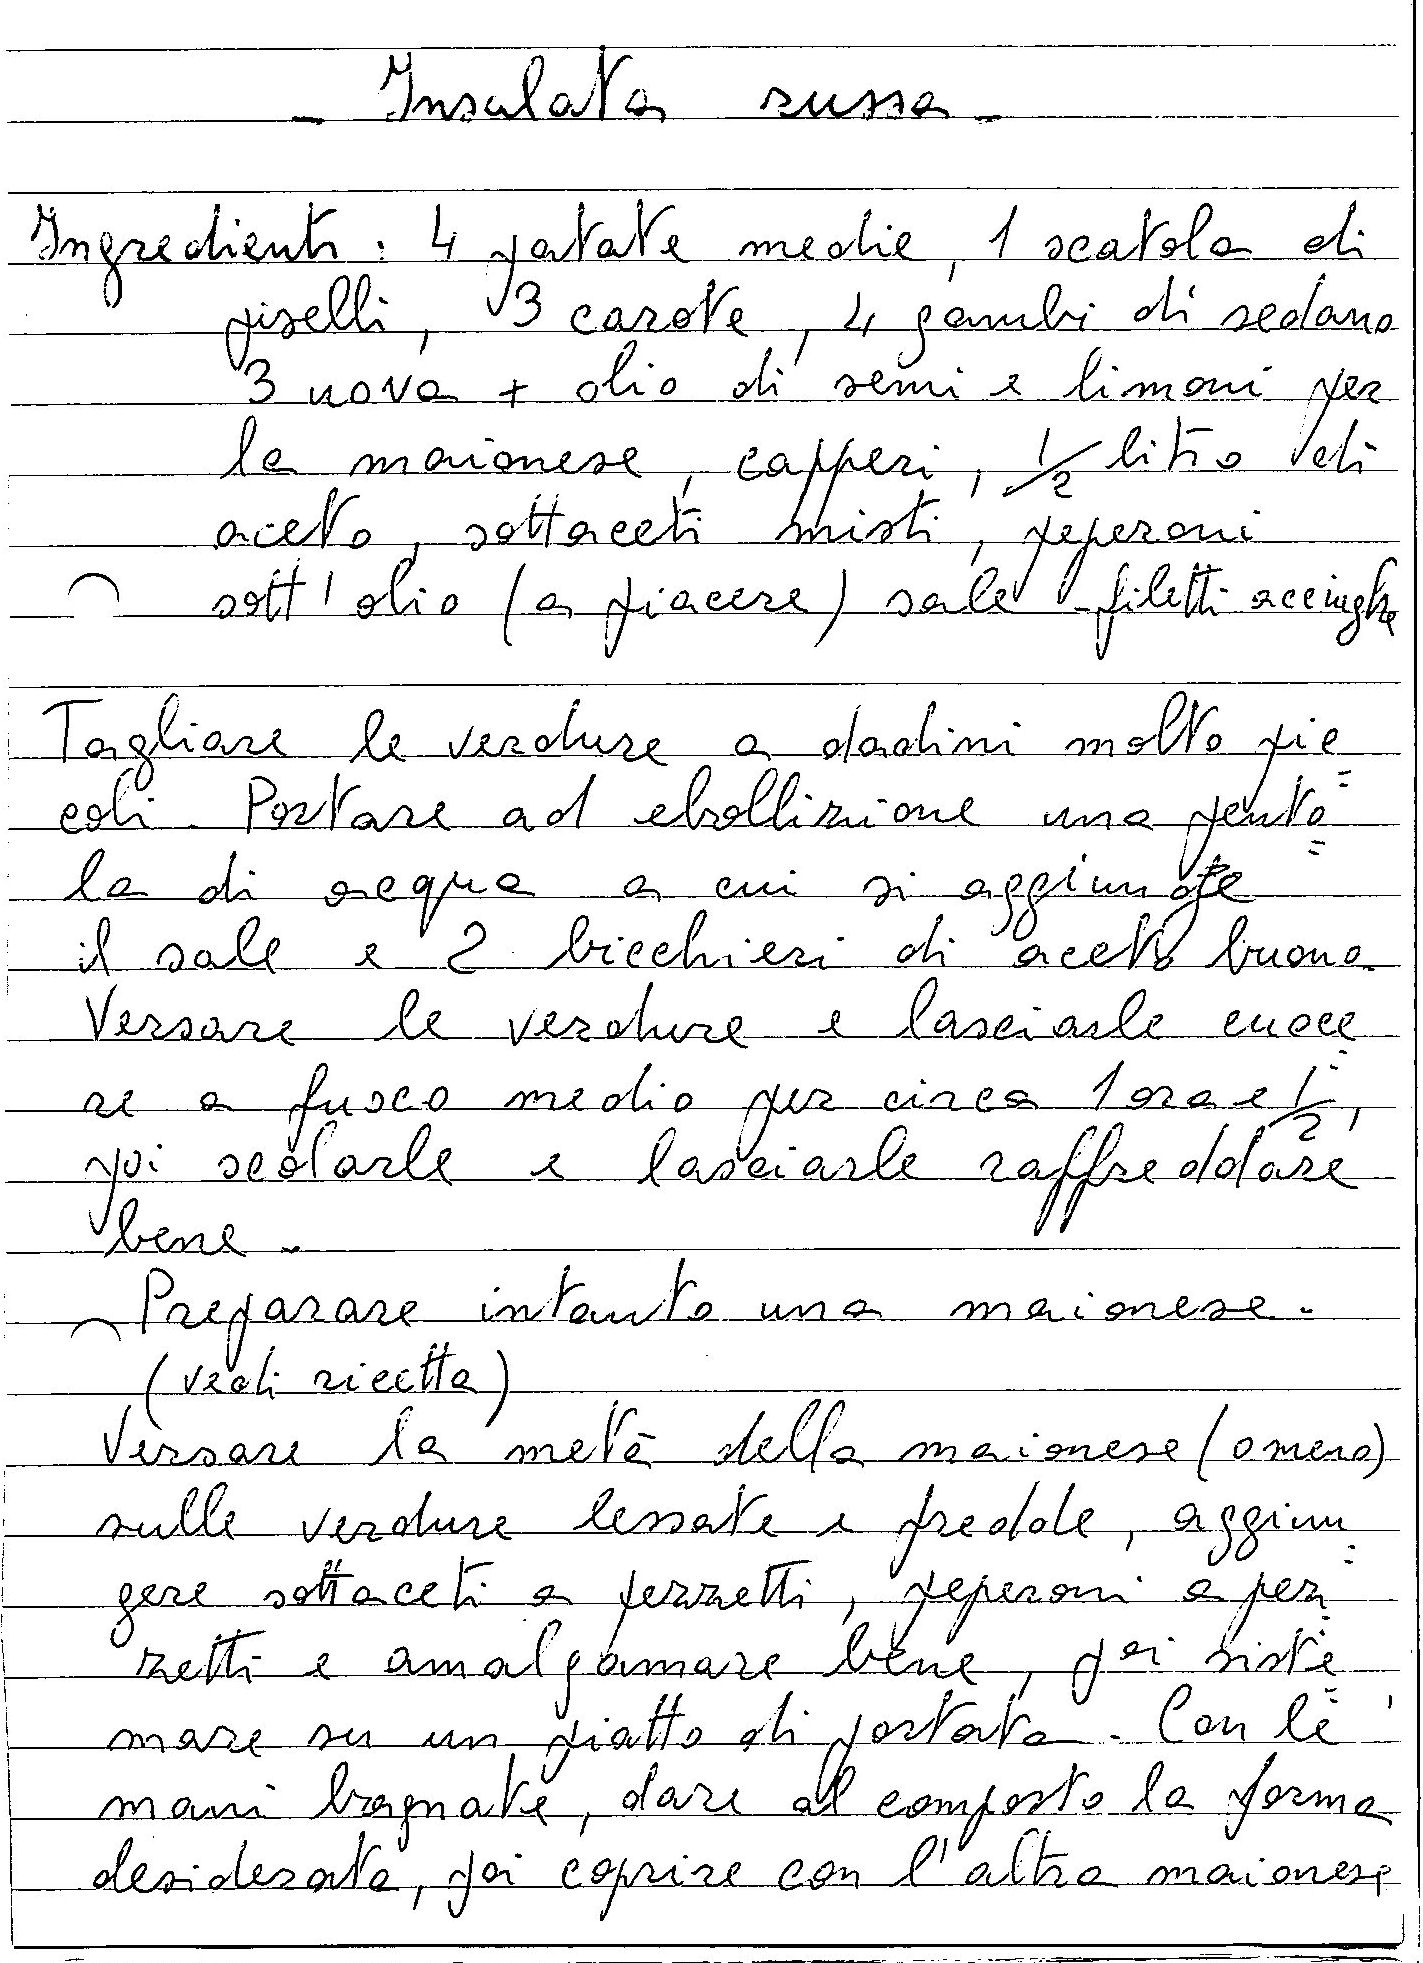 - Insalata russa -
Ingredienti : 4 patate medie, 1 scatola di
piselli, 3 carote, 4 gambi di sedano
3 uova + olio di semi e limoni per
la maionese, capperi, 1/2 litro di
aceto, sottaceti misti, peperoni
sott'olio (a piacere) sale - filetti acciughe
Tagliare le verdure a dadini molto pic=
coli. Portare ad ebollizione una pento=
la di acqua a cui si aggiunge
il sale e 2 bicchieri di aceto buono.
Versare le verdure e lasciarle cuoce=
re a fuoco medio per circa 1 ora e 1/2,
poi scolarle e lasciarle raffreddare
bene.
Preparare intanto una maionese.
(vedi ricetta)
Versare la metà della maionese (o meno)
sulle verdure lessate e fredde, aggiun=
gere sottaceti a pezzetti, peperoni a pez=
zetti e amalgamare bene, poi siste=
mare su un piatto di portata. Con le
mani bagnate, dare al composto la forma
desiderata, poi coprire con l'altra maionese